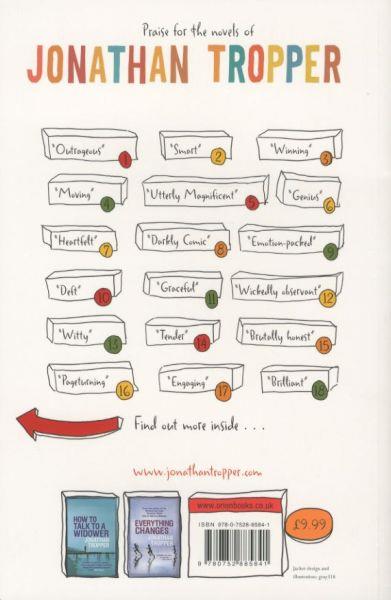 Praise for the novels of
JONATHAN TROPPER
"Outrageous" 1 "Smart" 2 "Winning" 3
"Moving" 4 "Utterly Magnificent" 5 "Genius" 6
"Heartfelt" 7 "Darkly Comic" 8 "Emotion-packed" 9
"Deft" 10 "Graceful" 11 "Wickedly observant" 12
"Witty" 13 "Tender" 14 "Brutally honest" 15
"Pageturning" 16 "Engaging" 17 "Brilliant" 18
Find out more inside . . .
www.jonathantropper.com
HOW TO
TALK TO A
WIDOWER
JONATHAN
TROPPER
EVERYTHING
CHANGES
TROPPER
www.orionbooks.co.uk
ISBN 978-0-7528-8584-1
9 780752 885841
£9.99
Jacket design and
illustration: gray318